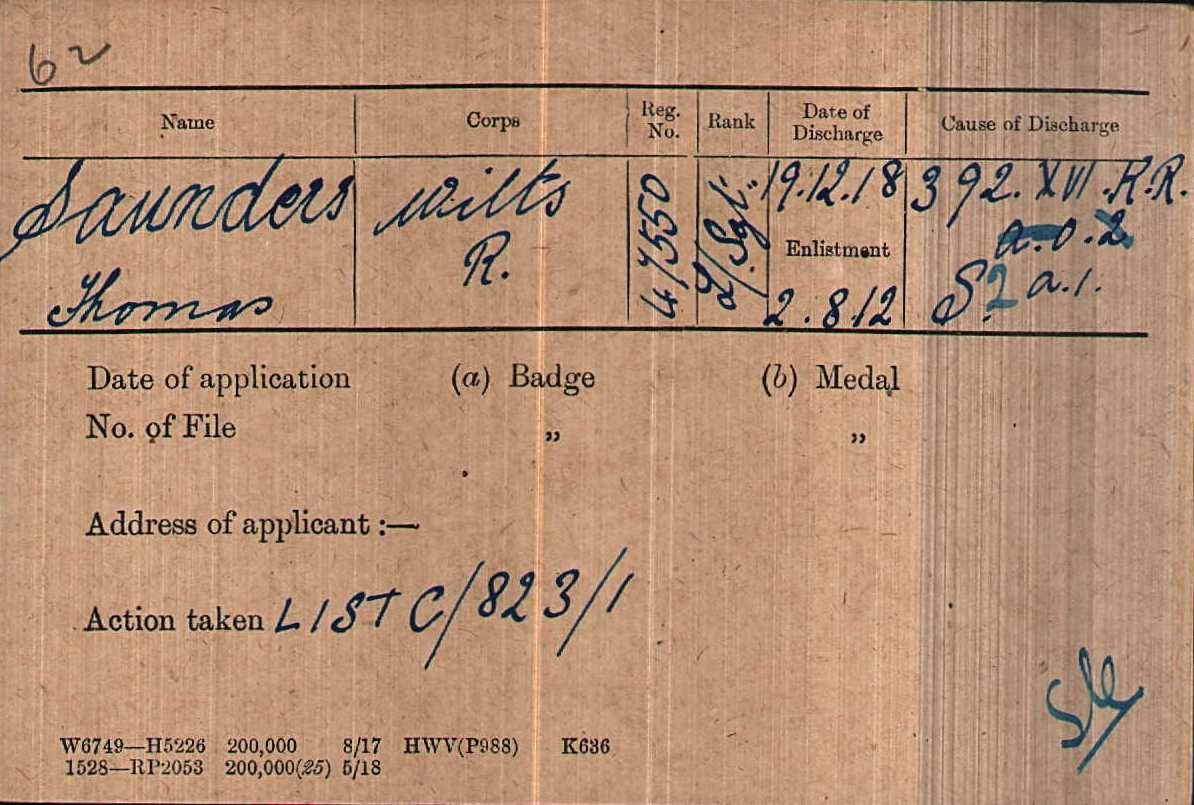 62
Name Corps Reg. No. Rank Date of Discharge Cause of Discharge
Saunders Wilts 47550 L/Sgt. 19.12.18 392.XVI.K.R.
R. Enlistment a.o.2
Thomas 2.8.12 S.2 a.1.
Date of application (a) Badge (b) Medal
No. of File „ „
Address of applicant :—
Action taken LIST C/823/1
W6749—H5226 200,000 8/17 HWV(P988) K636
1528—RP2053 200,000(25) 5/18